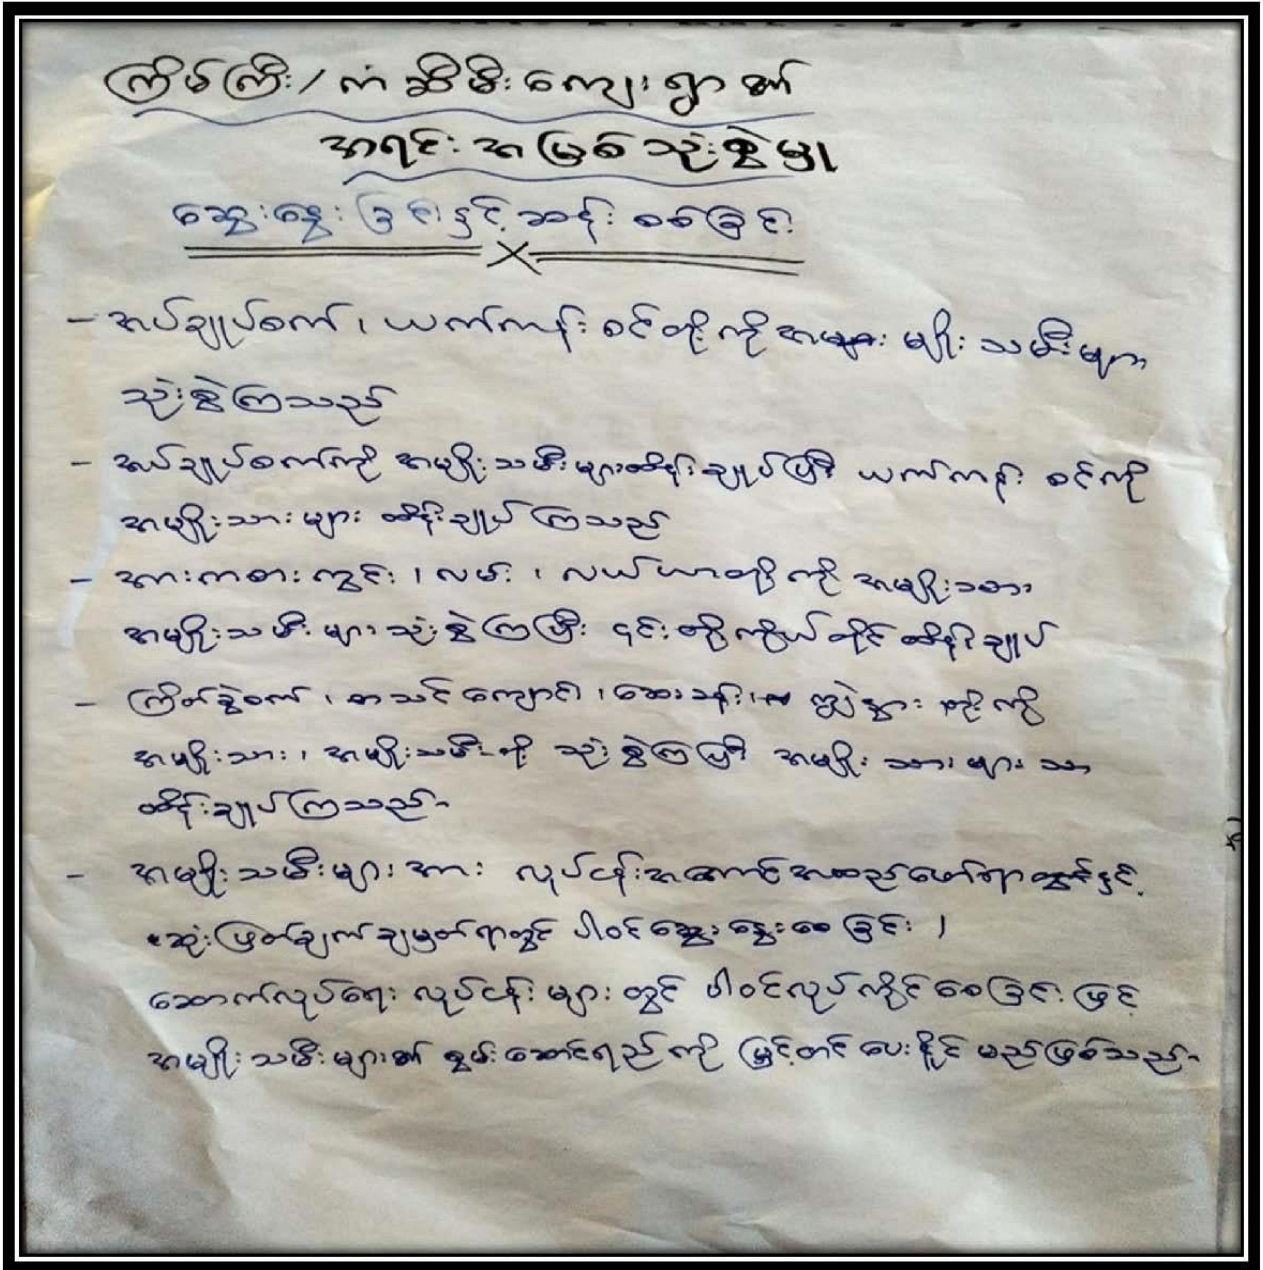 ကြိမ်ကြီး/ကံဆီမီးကျေးရွာ၏
အရင်းအမြစ်သုံးစွဲမှု
ဆွေးနွေးခြင်းနှင့်ဆန်းစစ်ခြင်း
- အပ်ချုပ်စက်၊ ယက်ကန်းစင်တို့ကို အများ မျိုးသမီးများ
သုံးစွဲကြသည်
- အပ်ချုပ်စက်ကို အမျိုးသမီးများထိန်းချုပ်ပြီး ယက်ကန်းစင်ကို
အမျိုးသားများ ထိန်းချုပ်ကြသည်
- အားကစားကွင်း၊ လမ်း၊ လယ်ယာတို့ကို အမျိုးသား
အမျိုးသမီးများသုံးစွဲကြပြီး ၎င်းတို့ကိုယ်တိုင်ထိန်းချုပ်
- ကြိတ်ခွဲစက်၊ စာသင်ကျောင်း၊ ဆေးခန်း၊ ကျွဲနွား တို့ကို
အမျိုးသား၊ အမျိုးသမီးတို့ သုံးစွဲကြပြီး အမျိုးသားများသာ
ထိန်းချုပ်ကြသည်။
- အမျိုးသမီးများအား လုပ်ငန်းအကောင်အထည်ဖော်ရာတွင်နှင့်
ဆုံးဖြတ်ချက်ချမှတ်ရာတွင် ပါဝင်ဆွေးနွေးစေခြင်း၊
ဆောက်လုပ်ရေးလုပ်ငန်းများတွင် ပါဝင်လုပ်ကိုင်စေခြင်းဖြင့်
အမျိုးသမီးများ၏ စွမ်းဆောင်ရည်ကို မြှင့်တင်ပေးနိုင်မည်ဖြစ်သည်။